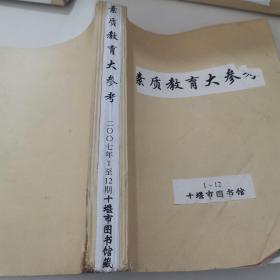 素质教育大参考
二〇〇七年1至12期十堰市图书馆藏
素质教育大参
1-12
十堰市图书馆